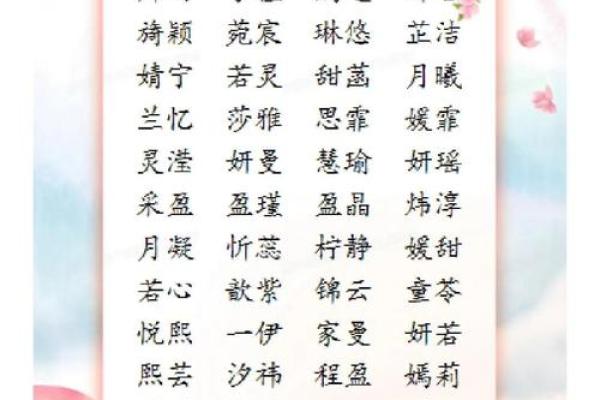 旖颖 菀宸 琳悠 芷洁
婧宁 若灵 甜菡 月曦
兰忆 莎雅 思霏 媛霏
灵滢 妍曼 慧瑜 妍瑶
采盈 盈瑾 盈晶 炜淳
月凝 忻蕊 柠静 媛甜
若心 歆紫 锦云 童苓
悦熙 一伊 家曼 妍若
熙芸 汐祎 程盈 嫣莉